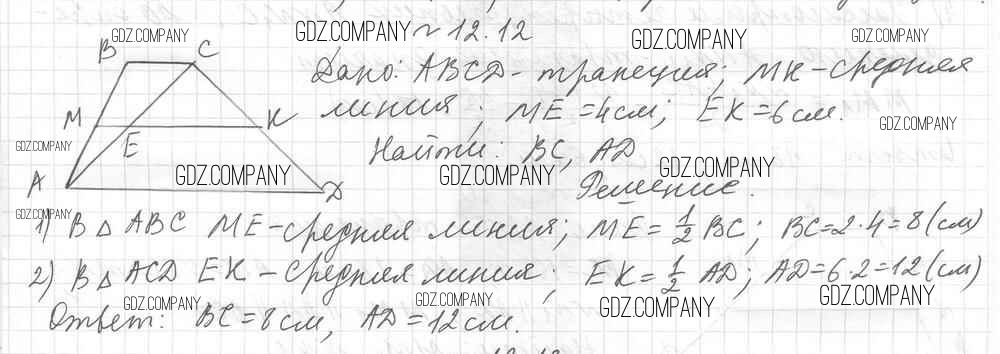 № 12.12
Дано: ABCD - трапеция; MK - средняя
линия; ME = 4 см; EK = 6 см.
Найти: BC, AD
Решение.
B C
M K
E
A D
1) В △ ABC ME - средняя линия; ME = 1/2 BC; BC = 2·4 = 8 (см)
2) В △ ACD EK - средняя линия; EK = 1/2 AD; AD = 6·2 = 12 (см)
Ответ: BC = 8 см, AD = 12 см.
GDZ.COMPANY
GDZ.COMPANY
GDZ.COMPANY
GDZ.COMPANY
GDZ.COMPANY
GDZ.COMPANY
GDZ.COMPANY
GDZ.COMPANY
GDZ.COMPANY
GDZ.COMPANY
GDZ.COMPANY
GDZ.COMPANY
GDZ.COMPANY